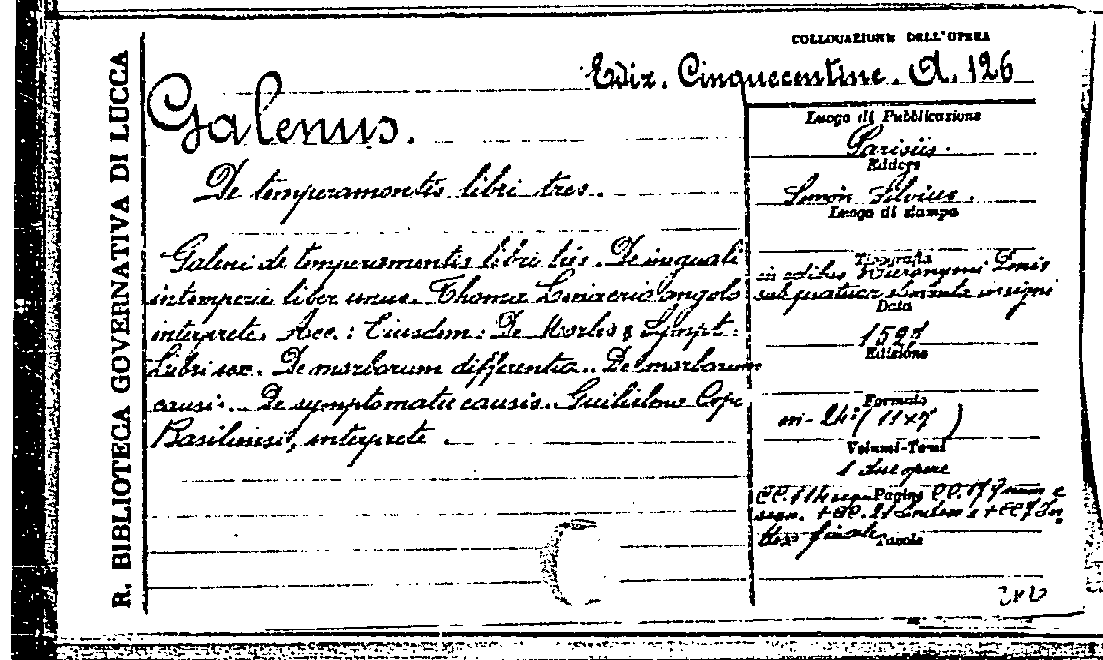 R. BIBLIOTECA GOVERNATIVA DI LUCCA
COLLOCAZIONE DELL'OPERA
Ediz. Cinquecentine. A. 126
Galenus.
De temperamentis libri tres.
Galeni de temperamentis libri tres. De inequali
intemperie liber unus. Thoma Linacrio anglo
interprete. Acc.: Eiusdem: De Morbis & Sympt.
Libri sex. De morborum differentia. De morborum
causis. De symptomatu causis. Guilielmo Cop
Basiliensi, interprete.
Luogo di Pubblicazione
Parisiis.
Editore
Simon Silvius.
Luogo di stampa
Tipografia
in edibus
sub quatuor insigni
Data
Edizione
Formato
in-24º
Volumi-Tomi
1 due opere
Pagine
finale
Tavole